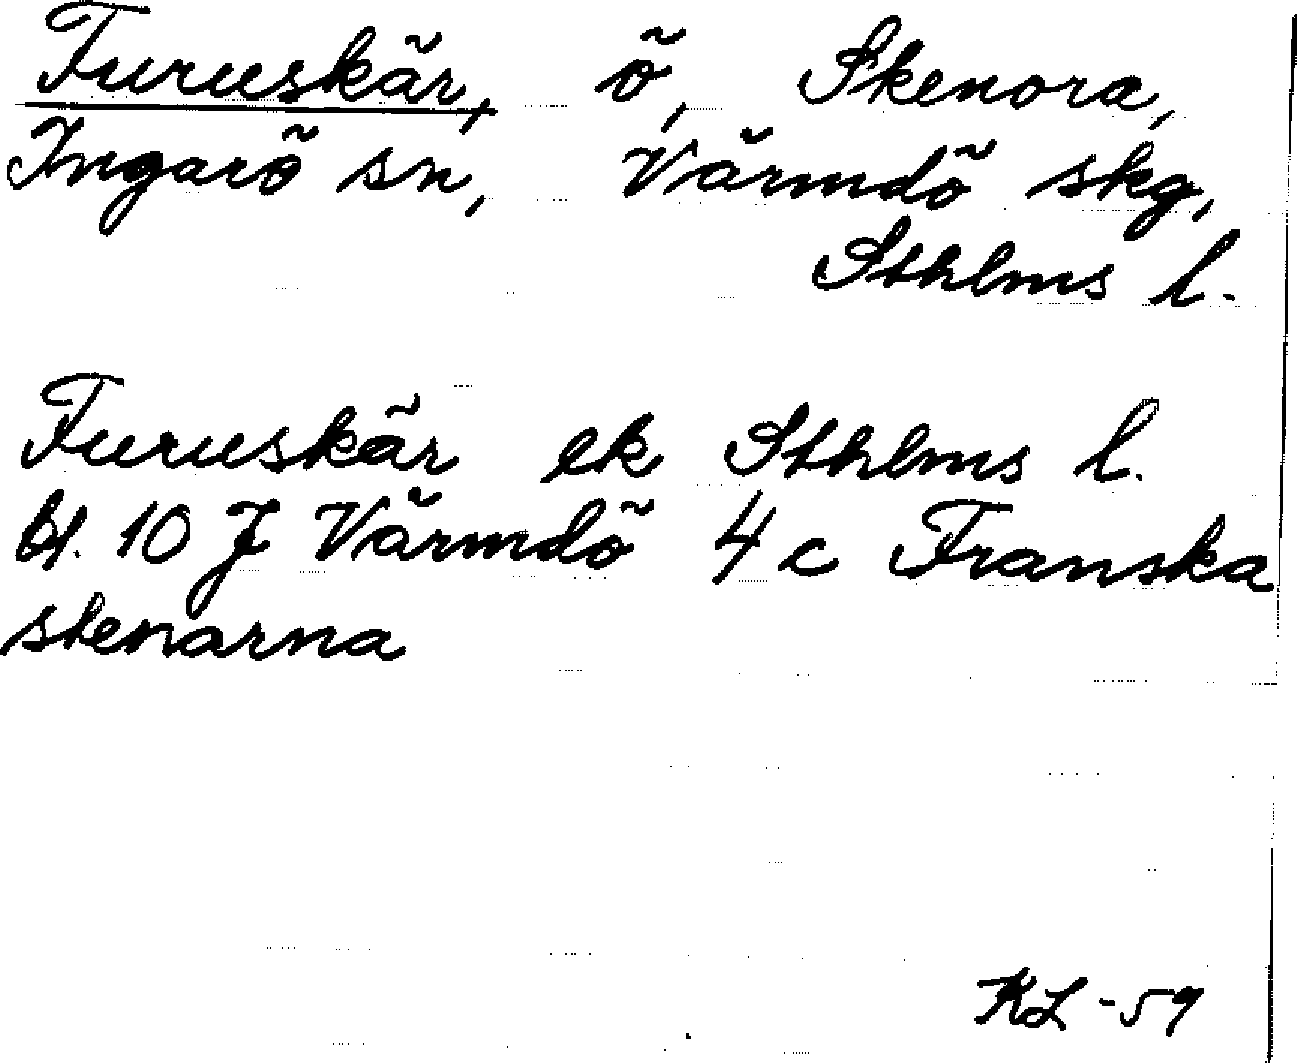 Furuskär, ö, Skenora,
Ingarö sn, Värmdö skg,
Sthlms l.
Furuskär ek Sthlms l.
bl. 10 J Värmdö 4 c Franska
stenarna
KL -59